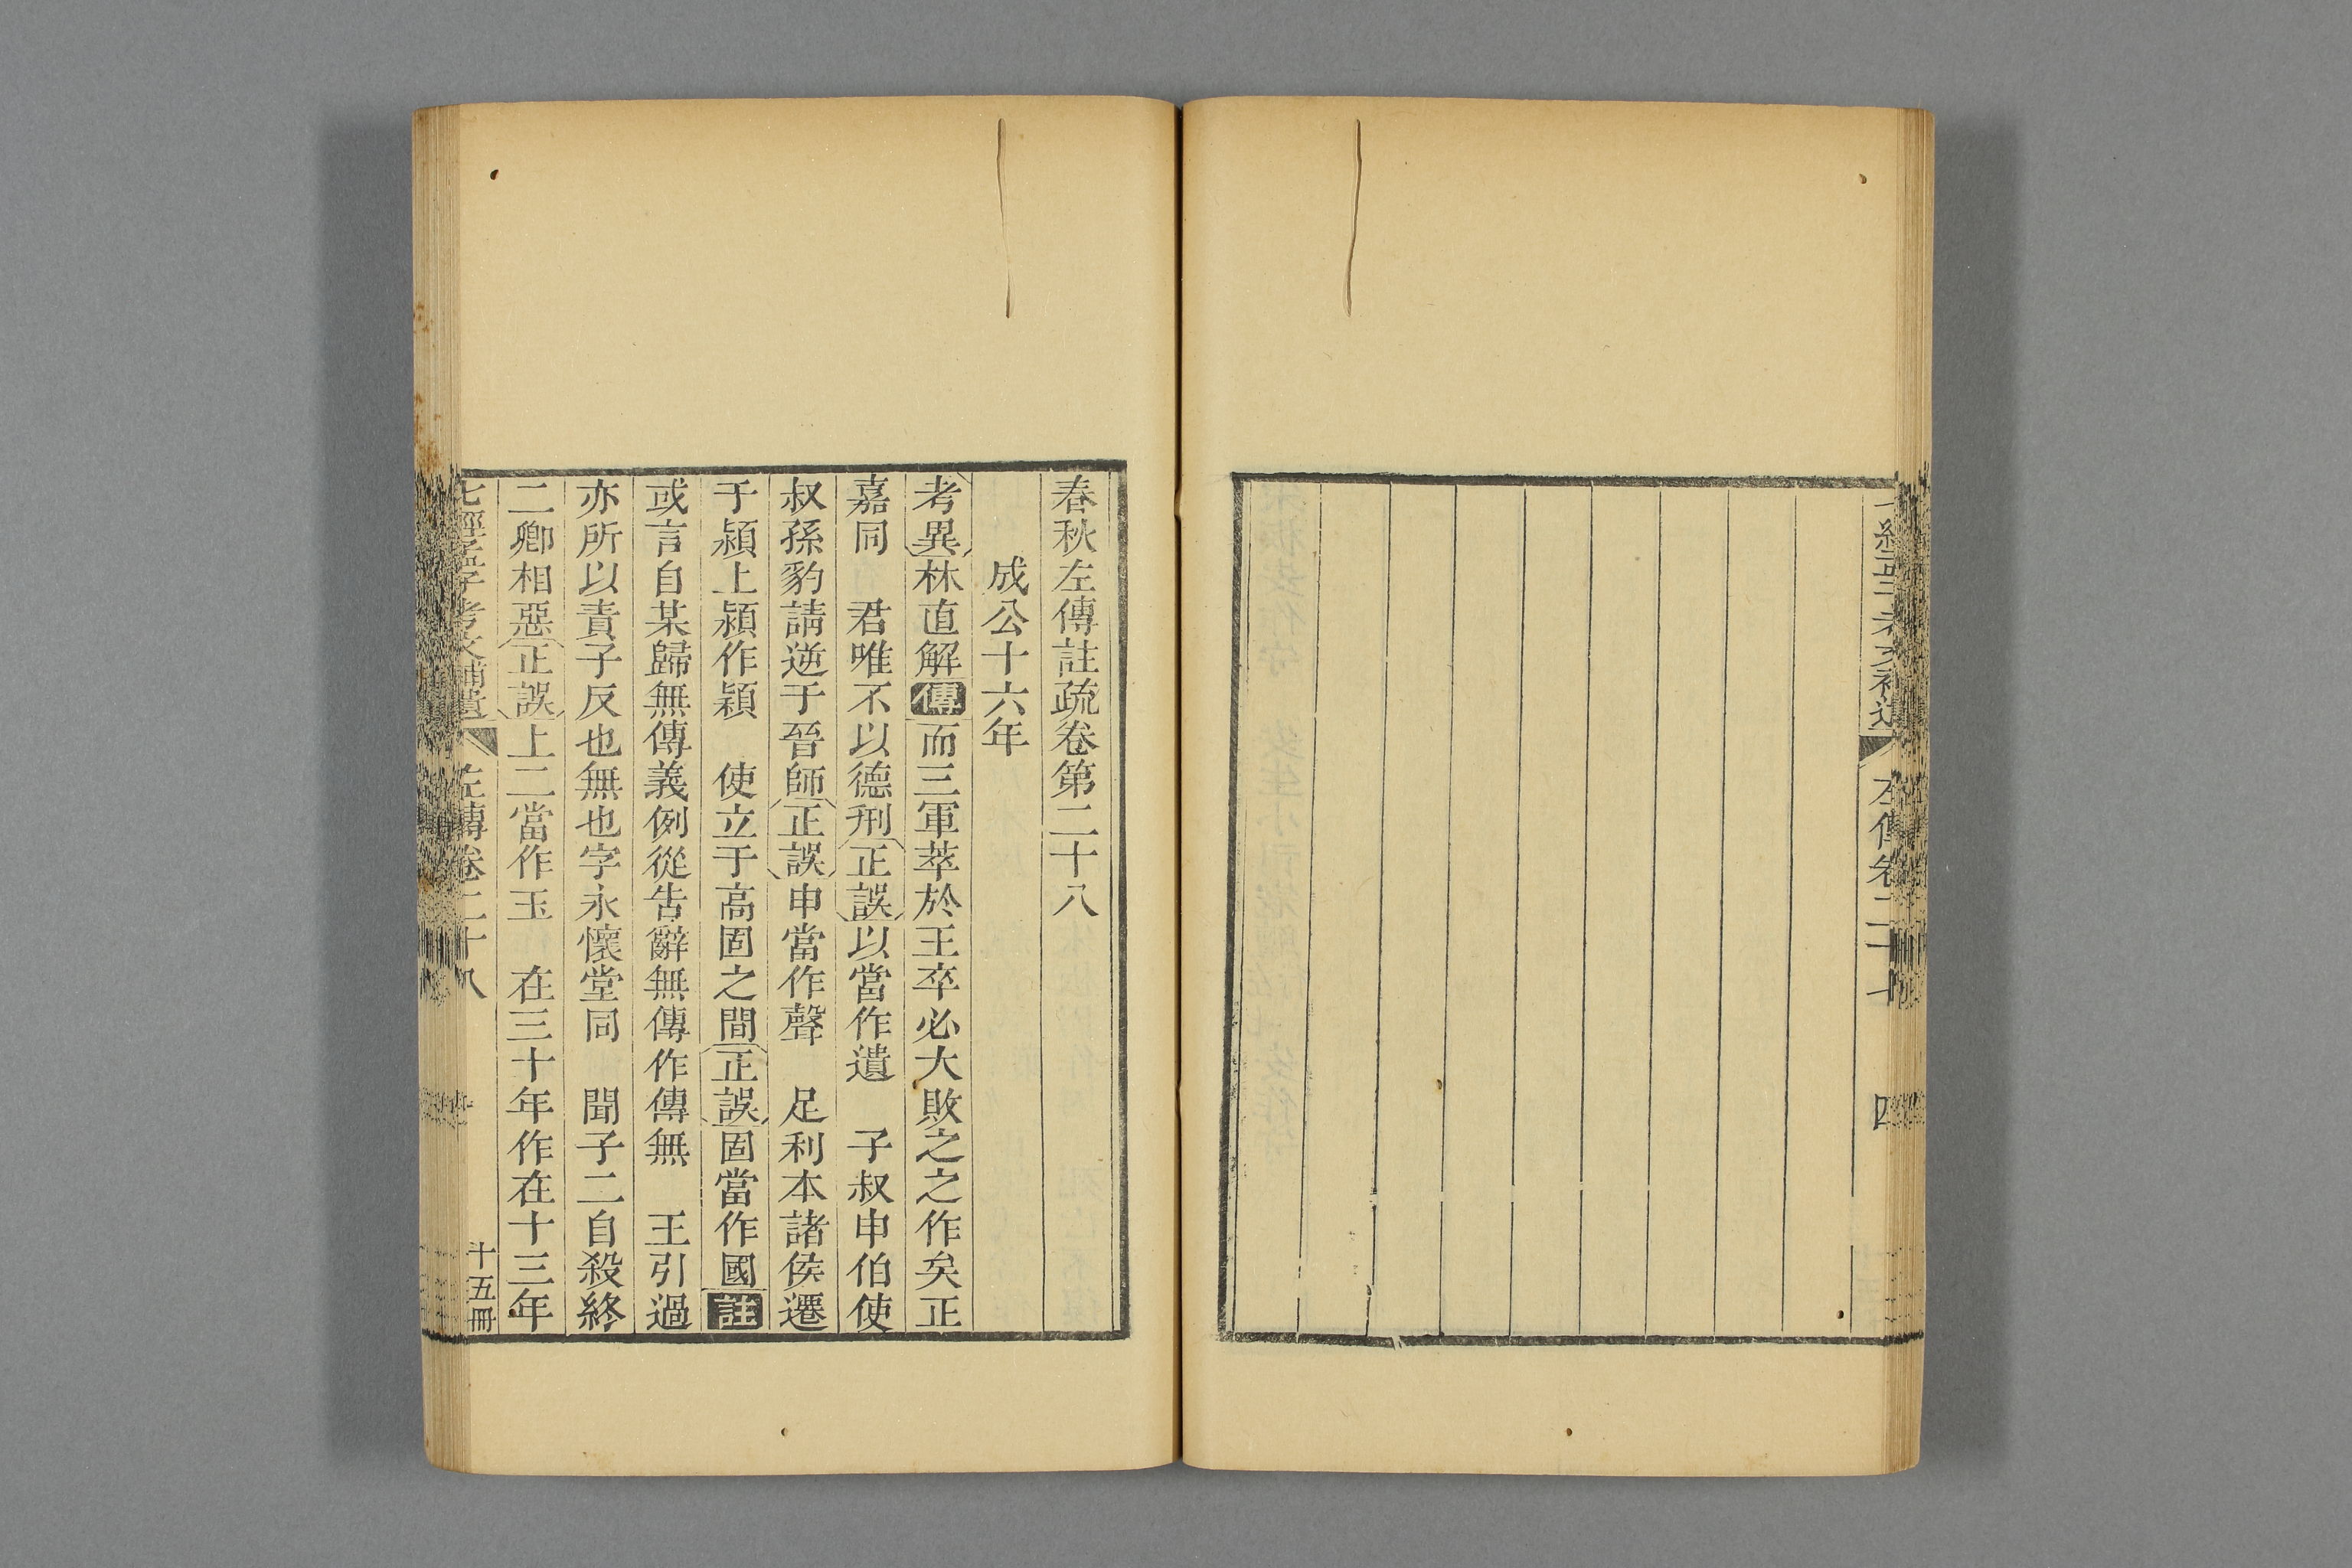 春秋左傳註疏卷第二十八
成公十六年
考異林直解傳而三軍萃於王卒必大敗之之作矣正
嘉同　君唯不以德刑正誤以當作遺　子叔申伯使
叔孫豹請逆于晉師正誤申當作聲　足利本諸侯遷
于潁上潁作穎　使立于高固之間正誤固當作國註
或言自某歸無傳義例從告辭無傳作傳無　王引過
亦所以責子反也無也字永懷堂同　聞子二自殺終
二卿相惡正誤上二當作玉　在三十年作在十三年
七經孟子考文補遺　左傳卷二十八　十五冊